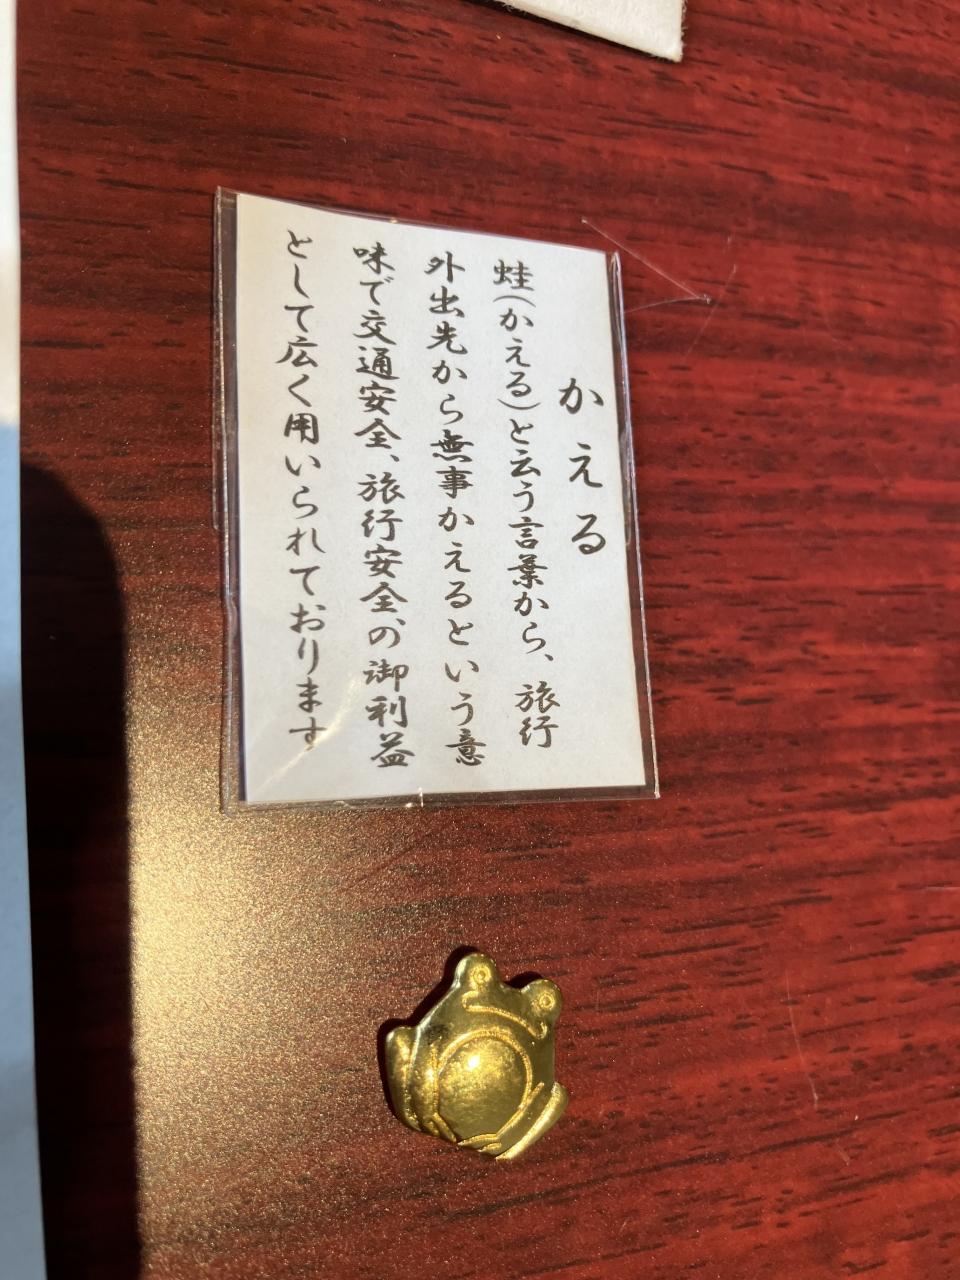 かえる
蛙(かえる)と云う言葉から、旅行
外出先から無事かえるという意
味で交通安全、旅行安全、の御利益
として広く用いられております